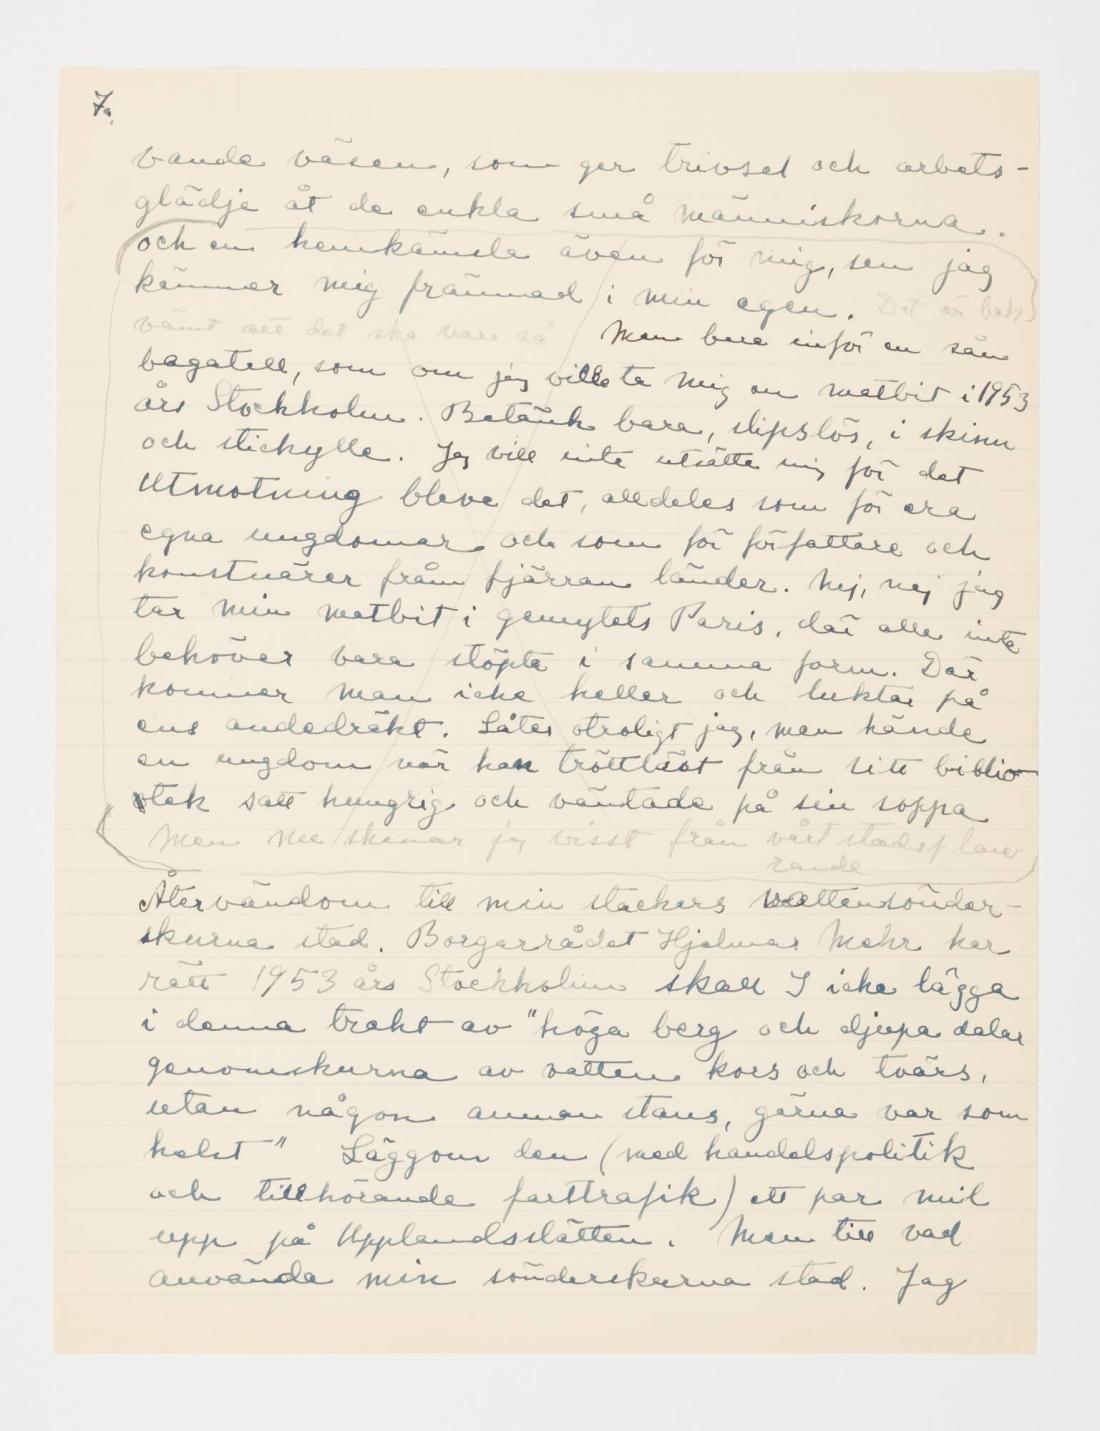 7a.
vande väsen, som ger trivsel och arbets-
glädje åt de enkla små människorna.
och en hemkänsla även för mig, som jag
känner mig främmad i min egen. Det är bek
vämt att det ska vara så Men bara inför en sån
bagatell, som om jag ville ta mig en matbit i 1953
års Stockholm. Betänk bara, slipslös, i skinn
och stickylle. Jag vill inte utsätta mig för det
Utmotning bleve det, alldeles som för era
egna ungdomar och som för författare och
konstnärer från fjärran länder. Nej, nej jag
tar min matbit i gemytets Paris, där alla inte
behöver vara stöpta i samma form. Där
kommer man icke heller och luktar på
ens andedräkt. Låter otroligt jag, men hände
en ungdom när han tröttläst från sitt biblio
otek satt hungrig och väntade på sin soppa
Men nu skenar jag visst från vårt stadsplane
rande
Återvändom till min stackers vattensönder-
skurna stad. Borgarrådet Hjalmar Mehr har
rätt 1953 års Stockholm skall I icke lägga
i denna trakt av "höga berg och djupa dalar
genomskurna av vatten kors och tvärs,
utan någon annan stans, gärna var som
helst" Läggom den (med handelspolitik
och tillhörande farttrafik) ett par mil
upp på Upplandsslätten. Men till vad
använda min sönderskurna stad. Jag